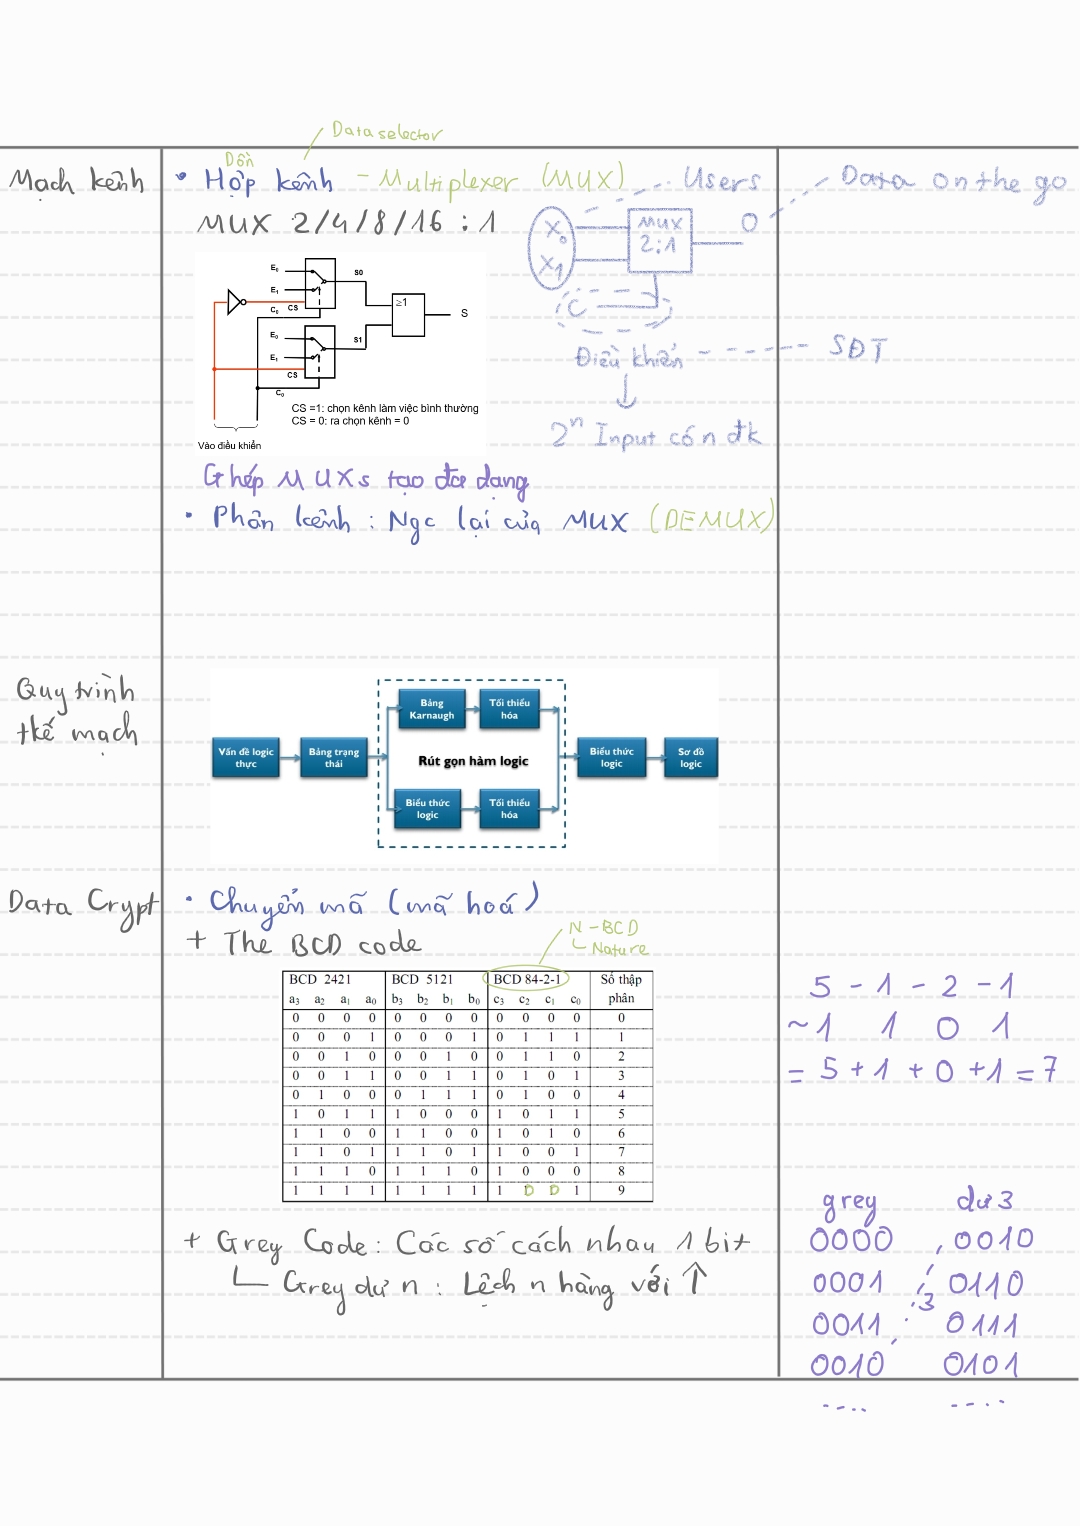 Data selector
Mạch kênh
Dồn
• Hợp kênh - Multiplexer (MUX)
MUX 2/4/8/16 : 1
Users
Data on the go
X₀
X₁
MUX
2:1
O
C
Điều khiển
SĐT
2ⁿ Input có n đk
E₀
E₁
C₀
CS
S0
E₀
E₁
CS
C₀
S1
≥1
S
CS =1: chọn kênh làm việc bình thường
CS = 0: ra chọn kênh = 0
Vào điều khiển
Ghép MUXs tạo đa dạng
• Phân kênh : Ngc lại của MUX (DEMUX)
Quy trình
tkế mạch
Vấn đề logic thực
Bảng trạng thái
Bảng Karnaugh
Tối thiểu hóa
Rút gọn hàm logic
Biểu thức logic
Tối thiểu hóa
Biểu thức logic
Sơ đồ logic
Data Crypt
• Chuyển mã (mã hoá)
+ The BCD code
N-BCD
Nature
BCD 2421 BCD 5121 BCD 84-2-1 Số thập phân
a₃ a₂ a₁ a₀ b₃ b₂ b₁ b₀ c₃ c₂ c₁ c₀
0 0 0 0 0 0 0 0 0 0 0 0 0
0 0 0 1 0 0 0 1 0 1 1 1 1
0 0 1 0 0 0 1 0 0 1 1 0 2
0 0 1 1 0 0 1 1 0 1 0 1 3
0 1 0 0 0 1 1 1 0 1 0 0 4
1 0 1 1 1 0 0 0 1 0 1 1 5
1 1 0 0 1 1 0 0 1 0 1 0 6
1 1 0 1 1 1 0 1 1 0 0 1 7
1 1 1 0 1 1 1 0 1 0 0 0 8
1 1 1 1 1 1 1 1 1 0 0 1 9
5 - 1 - 2 - 1
~1 1 0 1
= 5 + 1 + 0 + 1 = 7
+ Grey Code : Các số cách nhau 1 bit
Grey dư n : Lệch n hàng với ↑
grey dư 3
0000 0010
0001 0110
3
0011 0111
0010 0101
.... ....